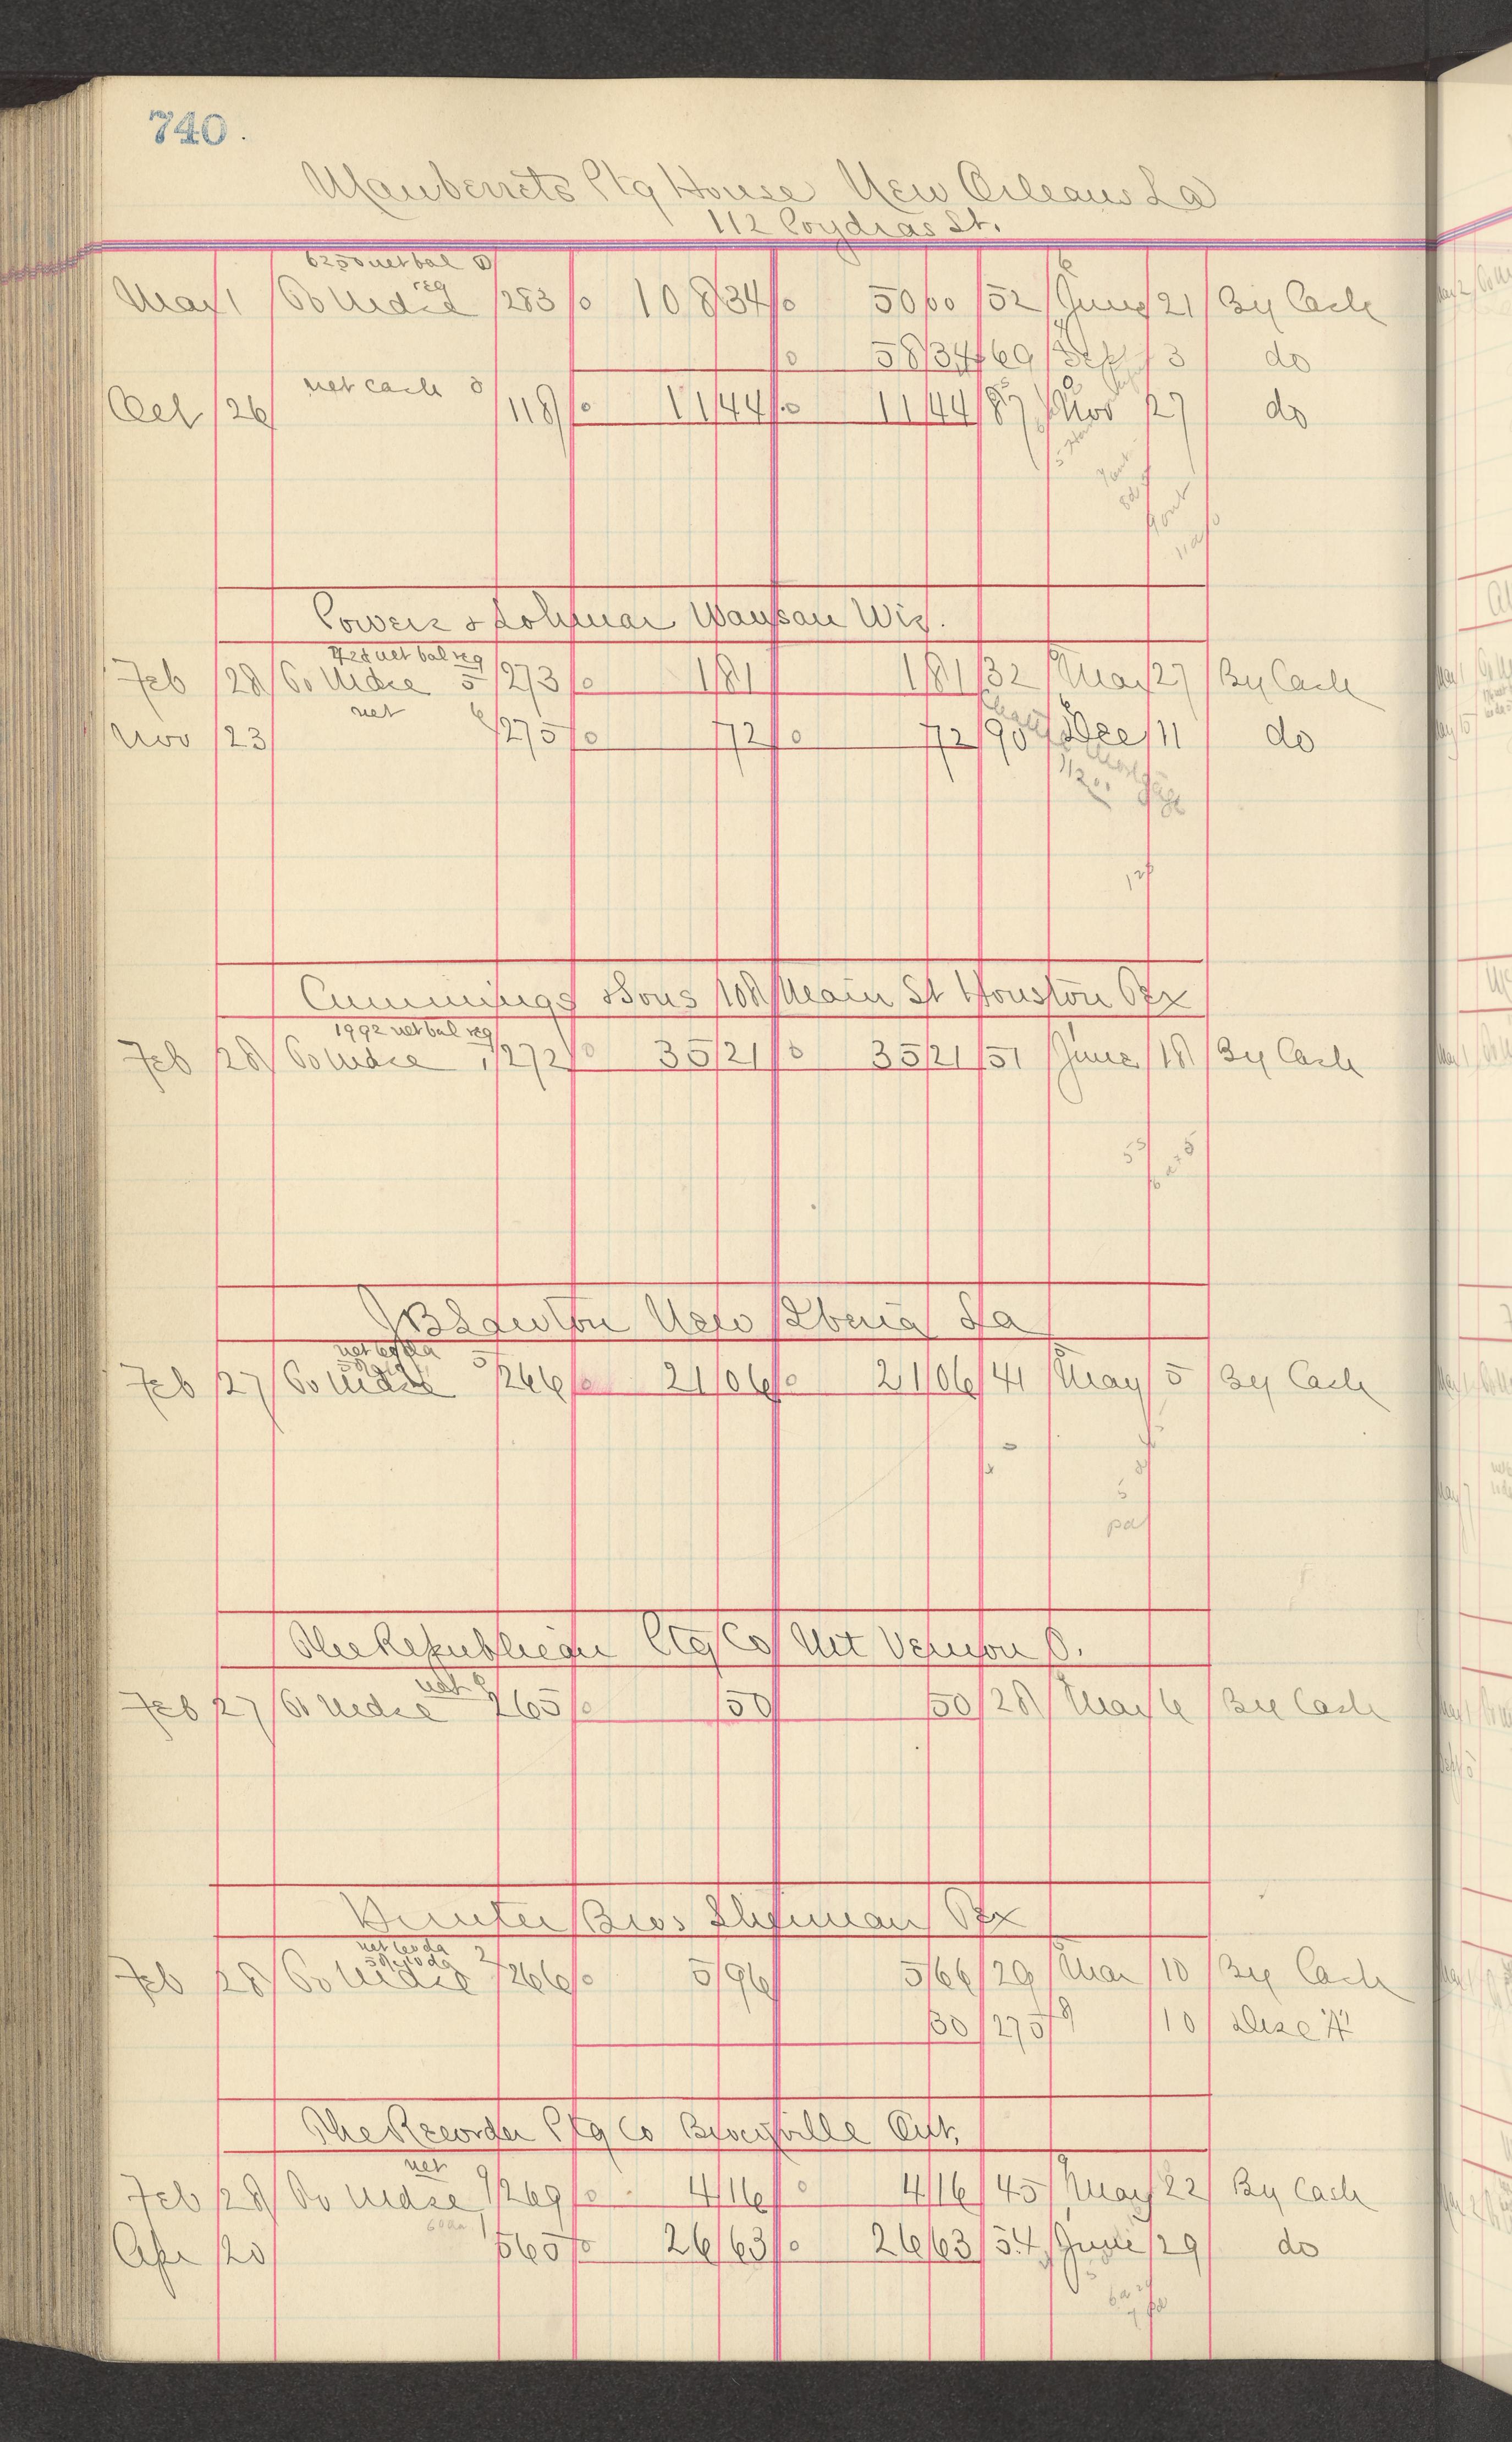 740.
Mauberrets Ptg House New Orleans La
112 Poydras St.
6250 net bal
reg
Mar 1 To Mdse 283 108 34 50 00 52 June 21 By Cash
58 34 69 Sep 3 do
net cash
Oct 26 118 11 44 11 44 87 Nov 27 do
Powers & Lohmar Wausau Wis.
net bal reg
Feb 28 To Mdse 5 273 1 81 1 81 32 May 27 By Cash
net 6
Nov 23 275 72 72 90 Dec 11 do
Cummings & Sons 108 Main St Houston Tex
1992 net bal reg
Feb 28 To Mdse 1 272 35 21 35 21 51 June 18 By Cash
J B Lawton New Iberia La
net 60 da
Feb 27 To Mdse 5 266 21 06 21 06 41 May 5 By Cash
5
pd
The Republican Ptg Co Mt Vernon O.
net
Feb 27 To Mdse 265 50 50 28 Mar 6 By Cash
Hunter Bros Sherman Tex
net 60 da
5% 10 da 2
Feb 28 To Mdse 266 5 96 5 66 29 Mar 10 By Cash
30 275 9 10 Disc "A"
The Recorder Ptg Co Brockville Ont.
net 9
Feb 28 To Mdse 269 4 16 4 16 45 May 22 By Cash
60 da 1
Apr 20 565 26 63 26 63 54 June 29 do